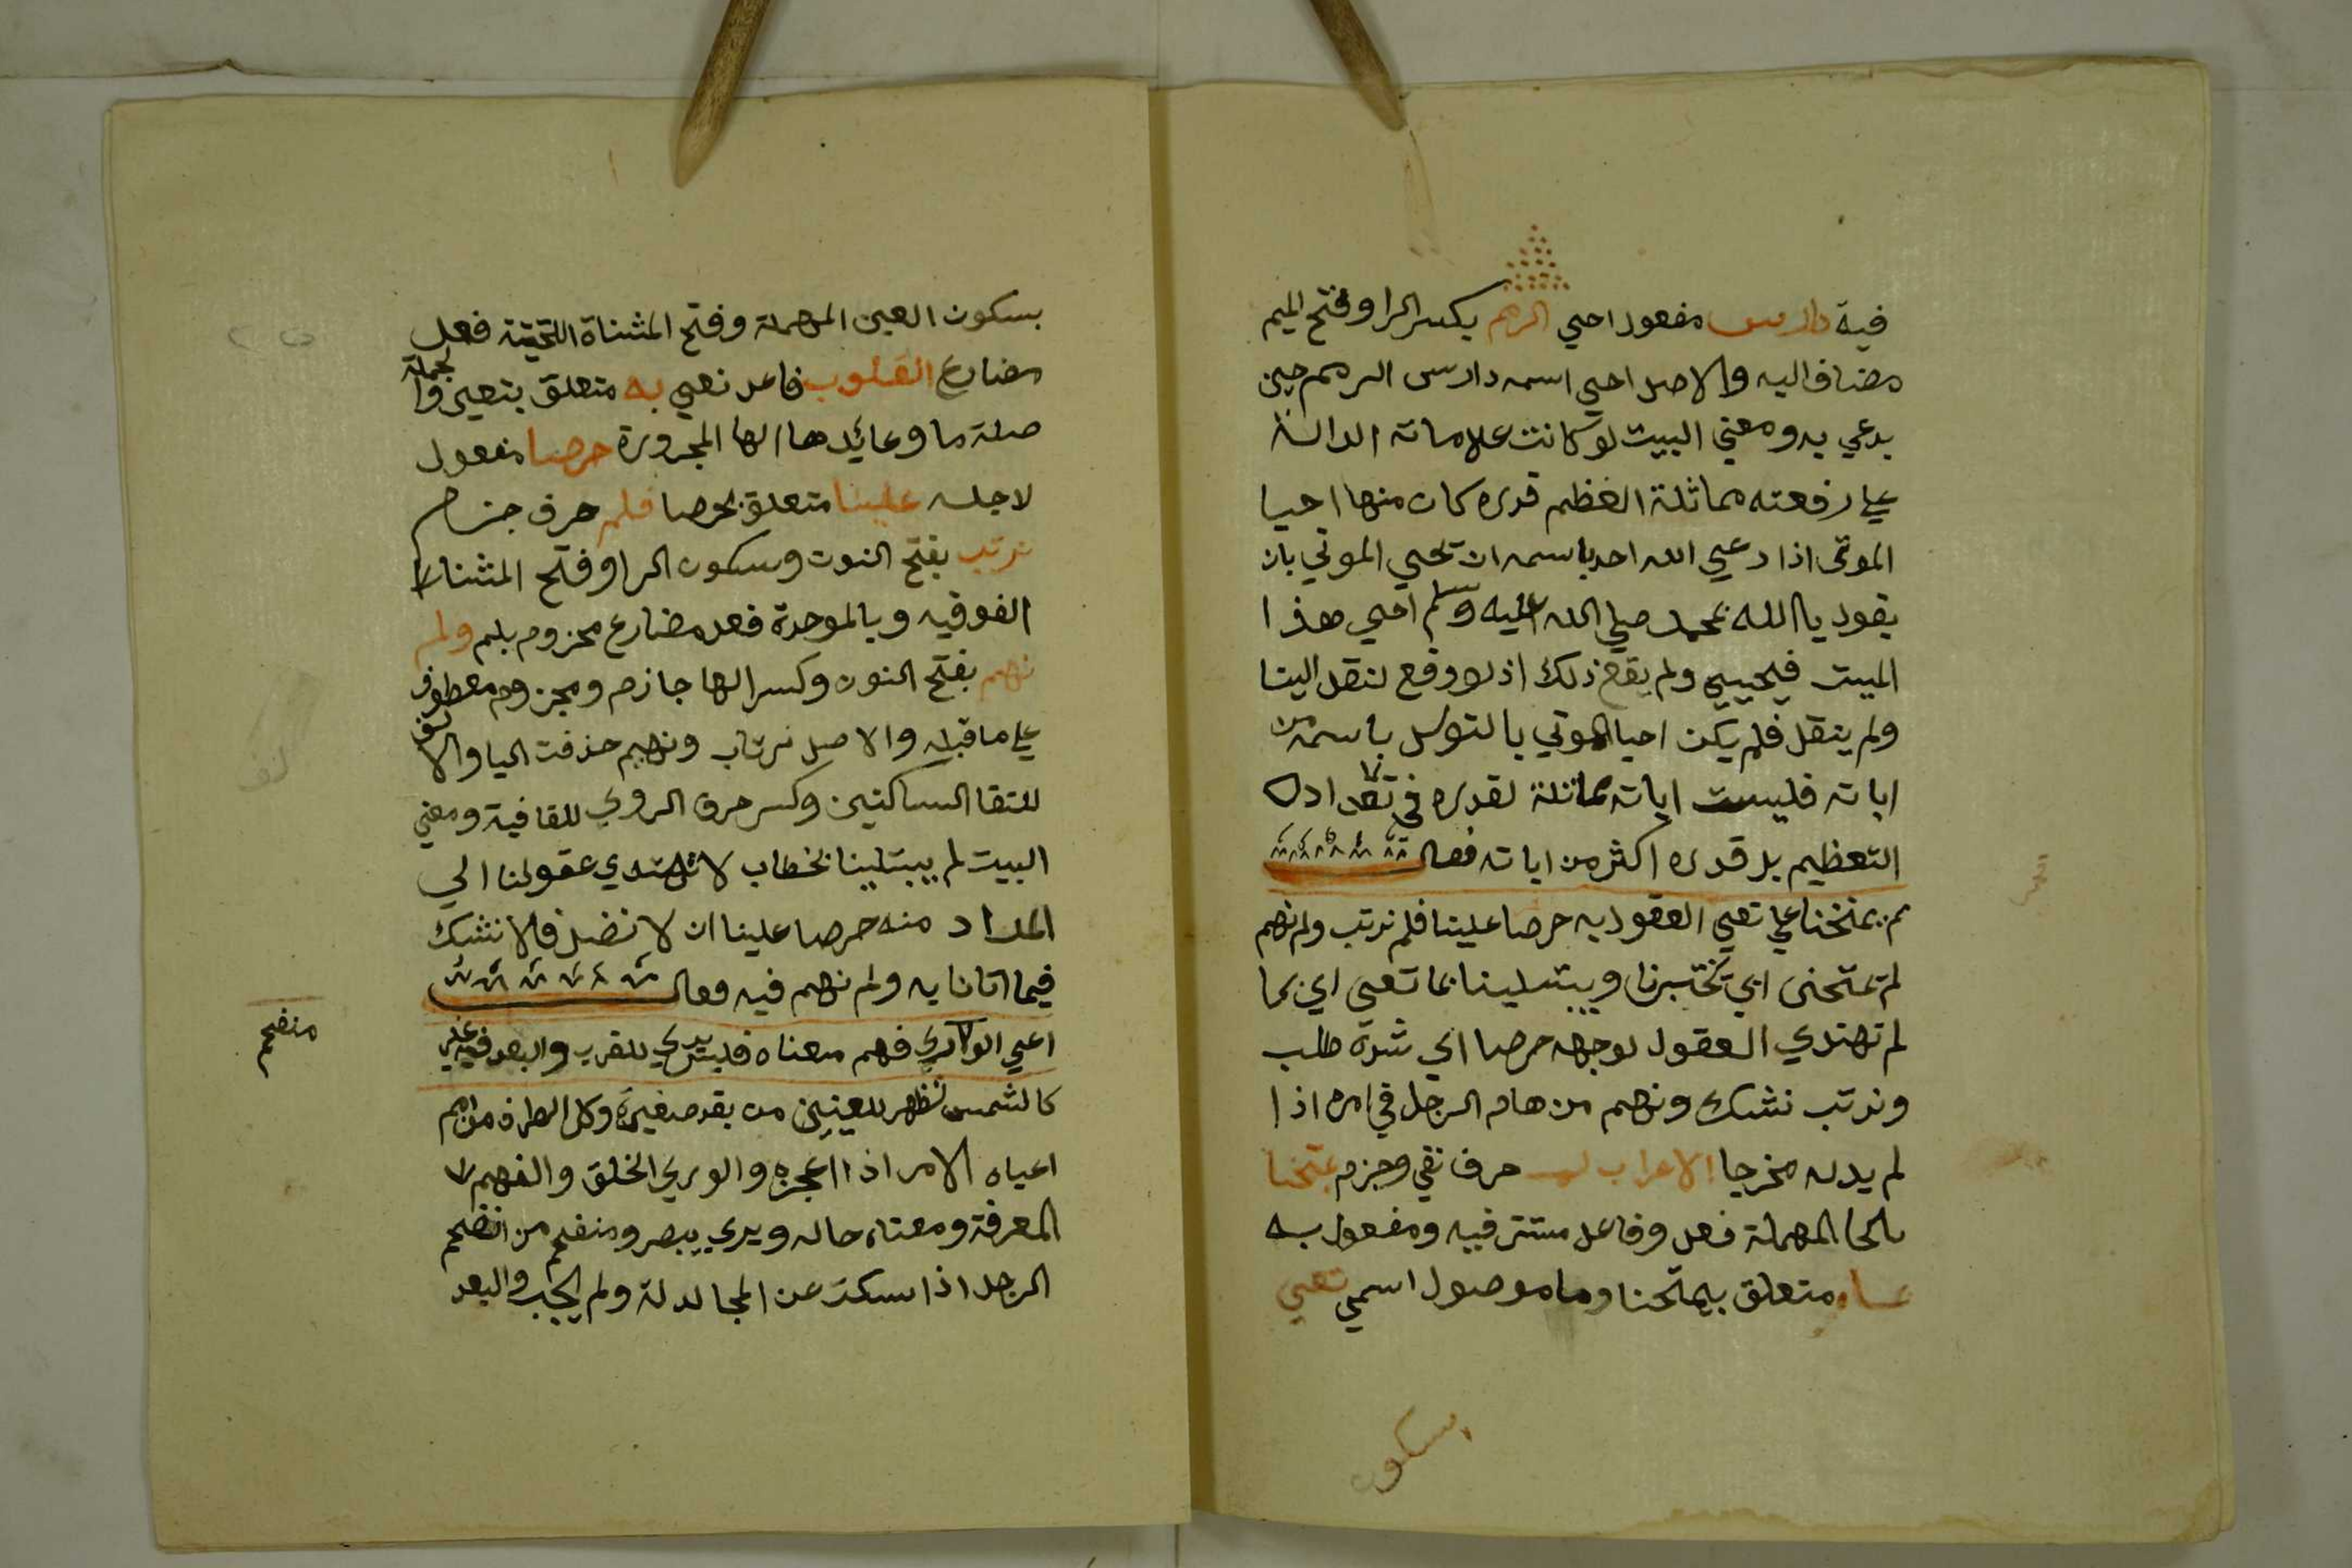 فيه دارس مفعول احيي الرمم بكسر الرا وفتح الميم
مضاف اليه والاصل احيي اسمه دارس الرمم حين
يدعي به ومعني البيت لو كانت علاماته الدالة
علي رفعته مماثلة العظم قدره كان منها احيا
الموتى اذا دعي الله احد باسمه ان تحيي الموتي بان
يقول يا الله بمحمد صلي الله عليه وسلم احيي هذا
الميت فيحييي ولم يقع ذلك اذ لو وقع لنقل الينا
ولم ينقل فلم يكن احيا الموتي بالتوسل باسمه من
اياته فليست اياته مماثلة لقدره في
التعظيم بل قدره اكثر من اياته فقال
لم يمتحنا علي تعيي العقول به حرصا علينا فلم نرتب ولم نهم
لم تمتحنى اي تختبرنا ويبتلينا بما تعيى اي بما
لم تهتدي العقول لوجهه حرصا اي شدة طلب
ونرتب نشك ونهم من هام الرجل في امره اذا
لم يدله مخرجا الاعراب لم حرف نفي وجزم يمتحنا
بالحا المهملة فعل وفاعل مستتر فيه ومفعول به
بما متعلق بيمتحنا وما موصول اسمي تعيي
بسكون
بسكون العين المهملة وفتح المثناة التحتية فعل
مضارع القلوب فاعل تعيي به متعلق بتعيي والجملة
صلة ما وعائدها الها المجرورة حرصا مفعول
لاجله علينا متعلق بحرصا فلم حرف جزم
نرتب بفتح النون وسكون الرا وفتح المثناة
الفوقيه وبالموحدة فعل مضارع مجزوم بلم ولم
نهم بفتح النون وكسر الها جازم ومجزوم معطوف
علي ما قبله والاصل نرتاب ونهيم حذفت اليا والالف
للتقا الساكنين وكسر حرف الروي للقافية ومعني
البيت لم يبتلينا بخطاب لا تهتدي عقولنا الي
المراد منه حرصا علينا ان لا نضل فلا نشك
فيما اتانا به ولم نهم فيه فقال
اعيي الورى فهم معناه فليس يري للقرب والبعد فيه غير
منفحم
كالشمس تظهر للعينين من بعد صغيرة وكل الطرف من امم
اعياه الامر اذا اعجزه والوري الخلق والفهم
المعرفة ومعناه حاله ويري يبصر ومنفحم من انفحم
الرجل اذا سكت عن المجادلة ولم يجب والبعد